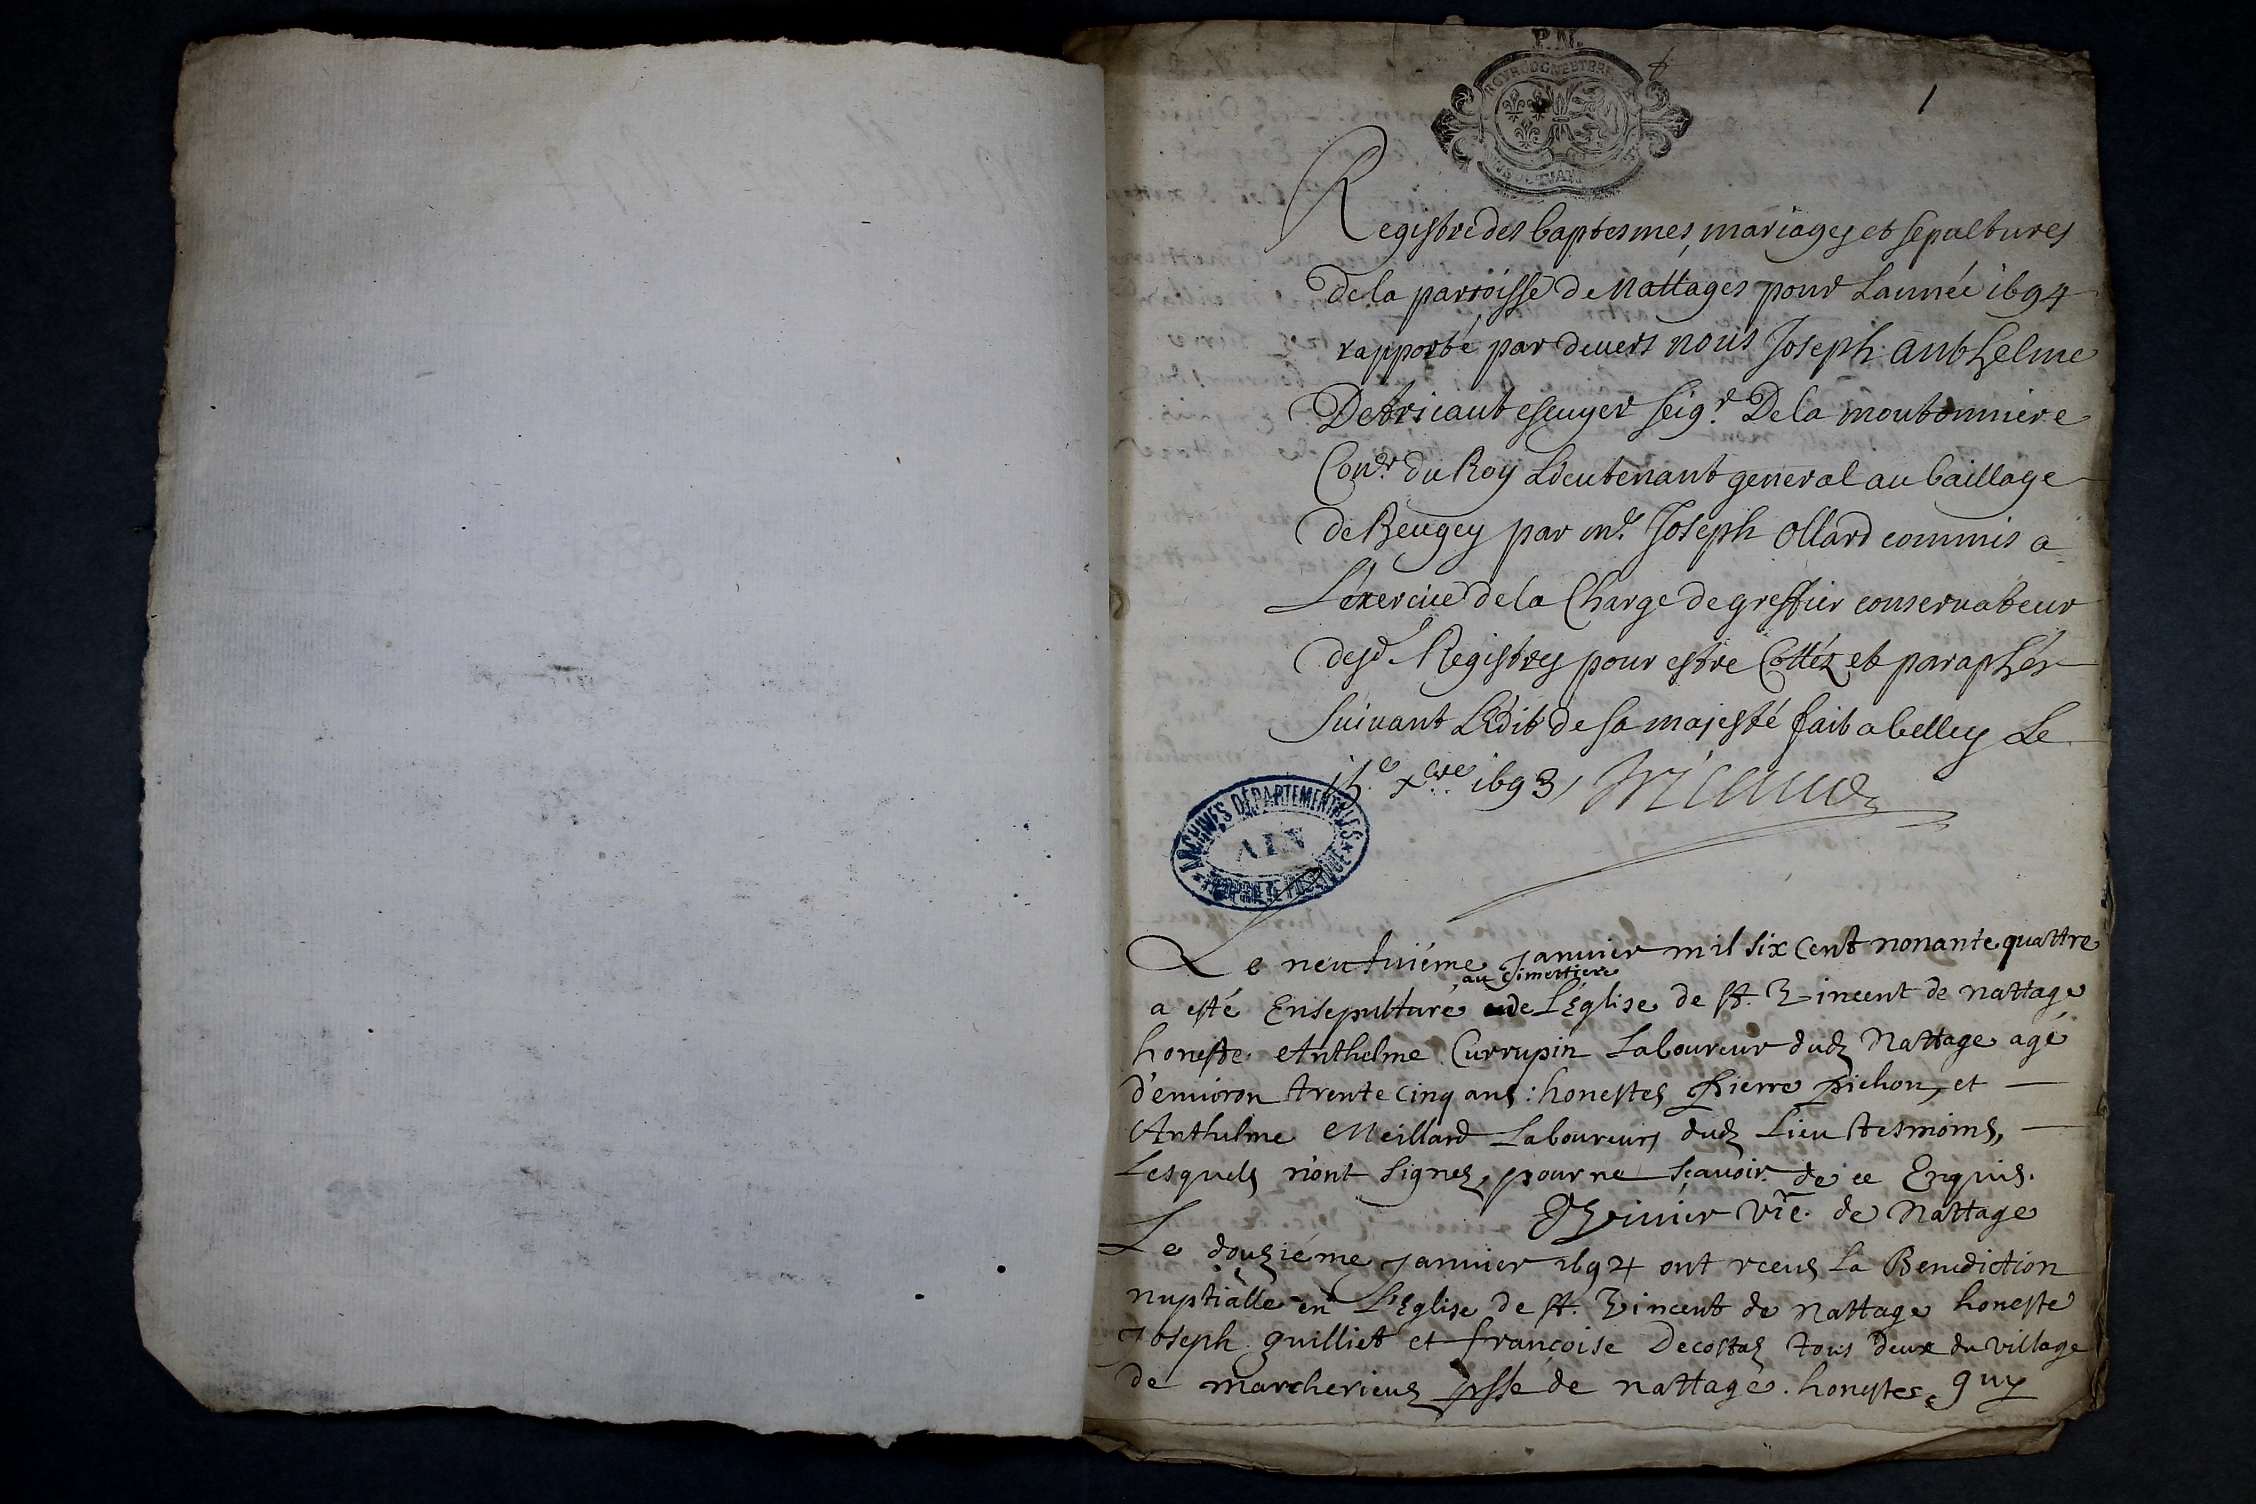 P. N.
1
Registre des baptesmes, mariages et sepultures
de la parroisse de Nattages pour Lannée 1694
rapporté par devers nous Joseph Anthelme
Detricaut escuyer seigr. De la moutonniere
Conr. du Roy Lieutenant general au baillage
de Beugey par mr. Joseph Ollard commis a
Lexercice de la Charge de greffier conservateur
desd. Registres pour estre Cottéz et paraphés
suivant LEdit de sa majesté fait a belley Le
15e xbre 1693
ARCHIVES DÉPARTEMENTALES
AIN
Le neufvième janvier mil six cent nonante quattre
au cimettiere
a esté Ensepulturé de LEglise de st. Vincent de Nattage
honeste Anthelme Currupin Laboureur dudz Nattage agé
d'environ trente cinq ans : honestes Pierre pichon, et
Anthelme Meillard Laboureurs dudz Lieu tesmoins,
Lesquels n'ont signez, pour ne sçavoir de ce Enquis.
vre. de Nattage
Le douzième janvier 1694 ont receus La Benediction
nuptiàlle en L'Eglise de st. Vincent de Nattage honeste
Joseph guilliet et françoise Decostaz tous deux du village
de marcherieuz psse de nattage. honestes guy